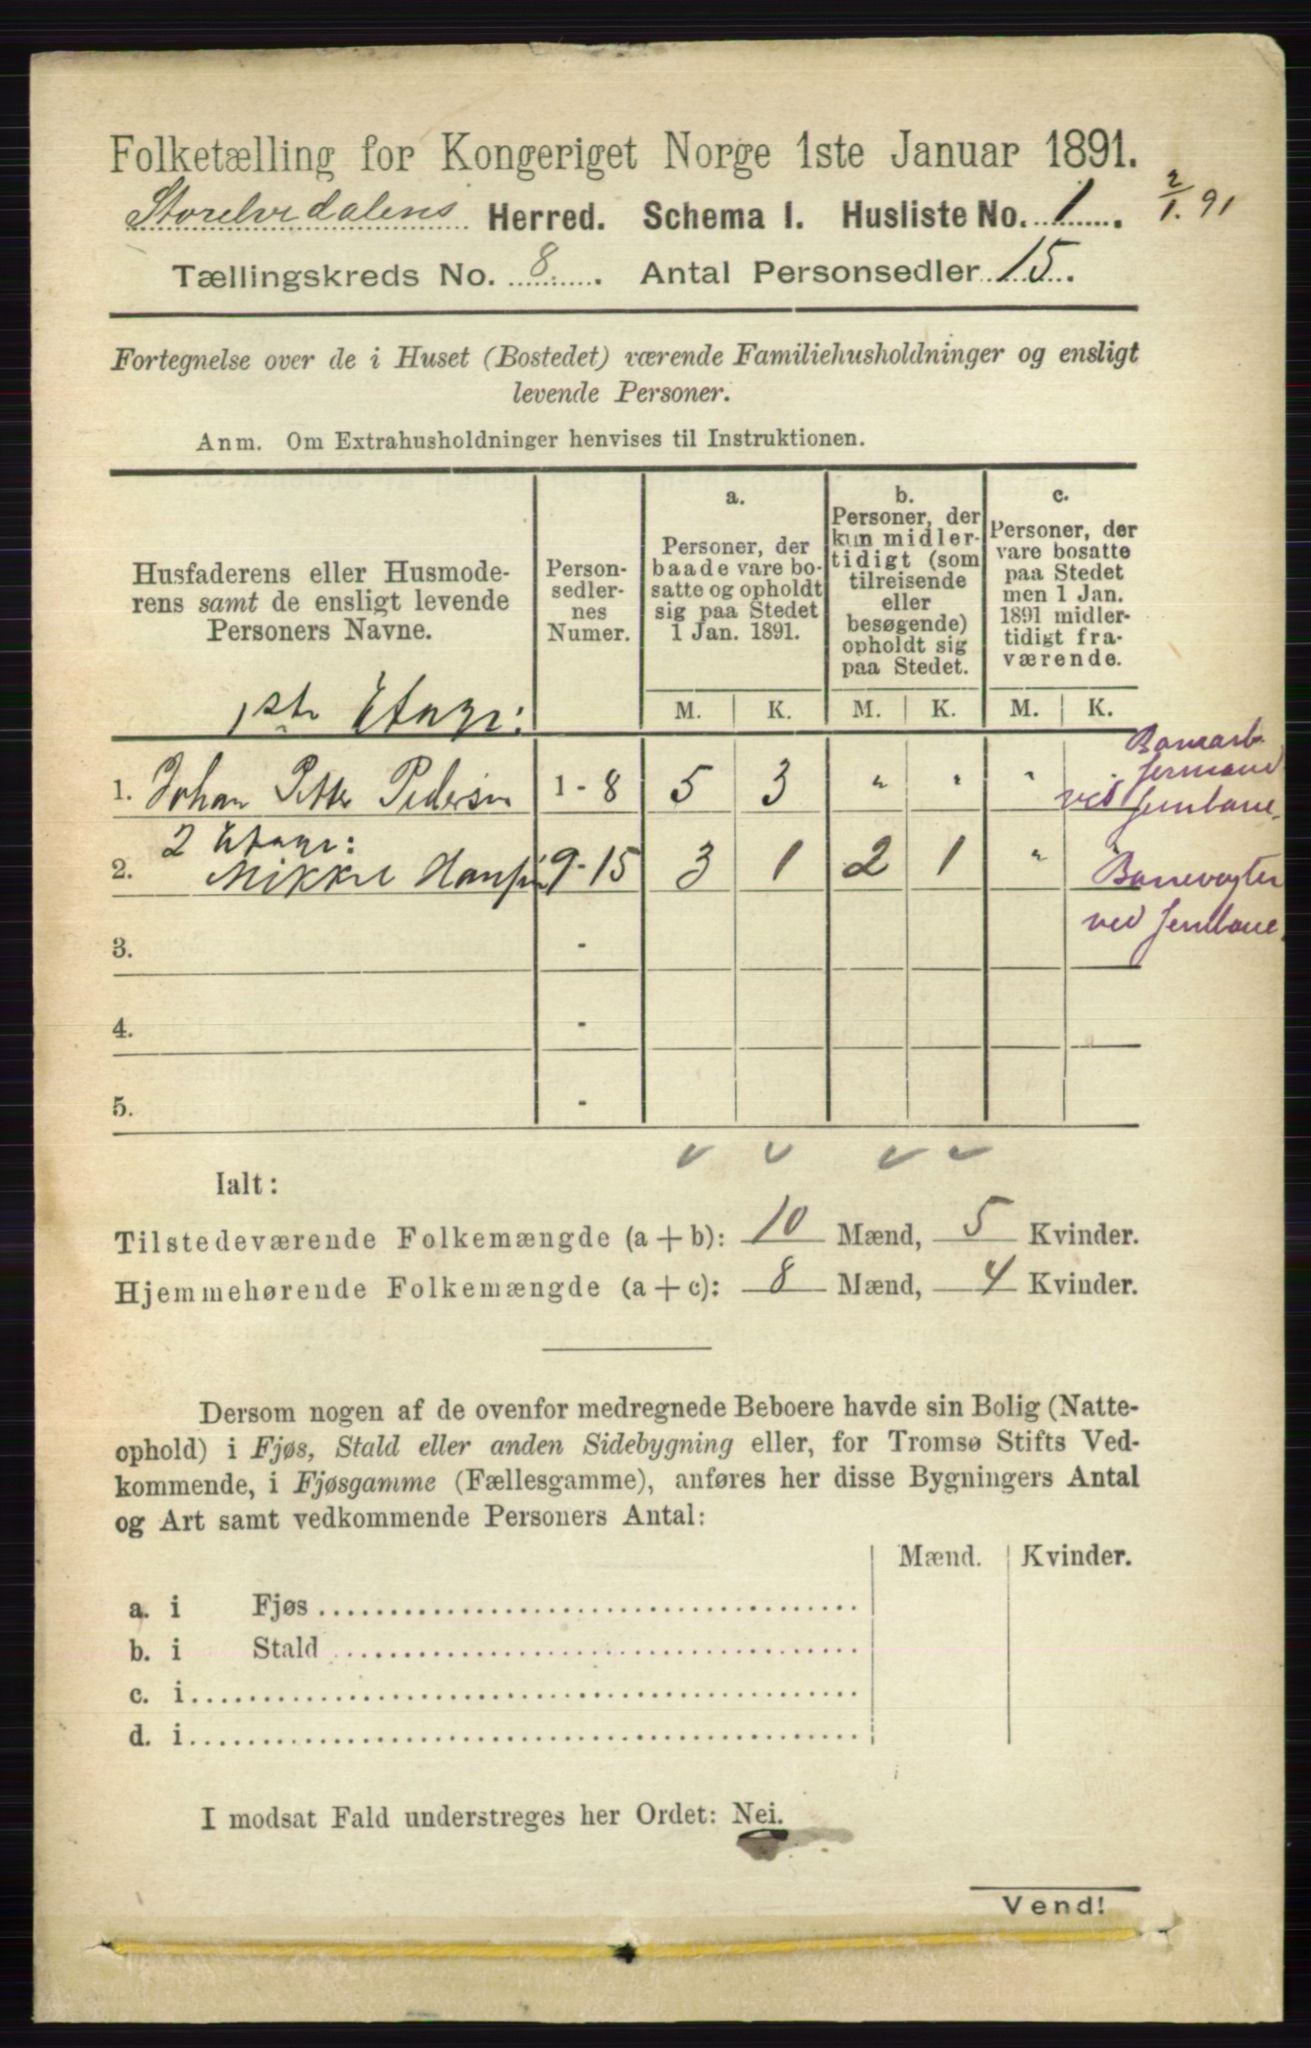 Folketælling for Kongeriget Norge 1ste Januar 1891.
Storelvedalens Herred. Schema I. Husliste No. 1. 2/1. 91
Tællingskreds No. 8. Antal Personsedler 15.
Fortegnelse over de i Huset (Bostedet) værende Familiehusholdninger og ensligt
levende Personer.
Anm. Om Extrahusholdninger henvises til Instruktionen.
Husfaderens eller Husmode-
rens samt de ensligt levende
Personers Navne.
1ste Etage:
Person-
sedler-
nes
Numer.
a.
Personer, der
baade vare bo-
satte og opholdt
sig paa Stedet
1 Jan. 1891.
b.
Personer, der
kun midler-
tidigt (som
tilreisende
eller
besøgende)
opholdt sig
paa Stedet.
c.
Personer, der
vare bosatte
paa Stedet
men 1 Jan.
1891 midler-
tidigt fra-
værende.
M. K. M. K. M. K.
1. Johan Petter Pedersen 1 - 8 5 3 " " "
ved Jernbane
2 Etage:
2. Mikkel Hansen 9 - 15 3 1 2 1 " " Banevogter
ved Jernbane
3. -
4. -
5. -
Ialt:
Tilstedeværende Folkemængde (a + b): 10 Mænd, 5 Kvinder.
Hjemmehørende Folkemængde (a + c): 8 Mænd, 4 Kvinder.
Dersom nogen af de ovenfor medregnede Beboere havde sin Bolig (Natte-
ophold) i Fjøs, Stald eller anden Sidebygning eller, for Tromsø Stifts Ved-
kommende, i Fjøsgamme (Fællesgamme), anføres her disse Bygningers Antal
og Art samt vedkommende Personers Antal:
Mænd. Kvinder.
a. i Fjøs
b. i Stald
c. i
d. i
I modsat Fald understreges her Ordet: Nei.
Vend!